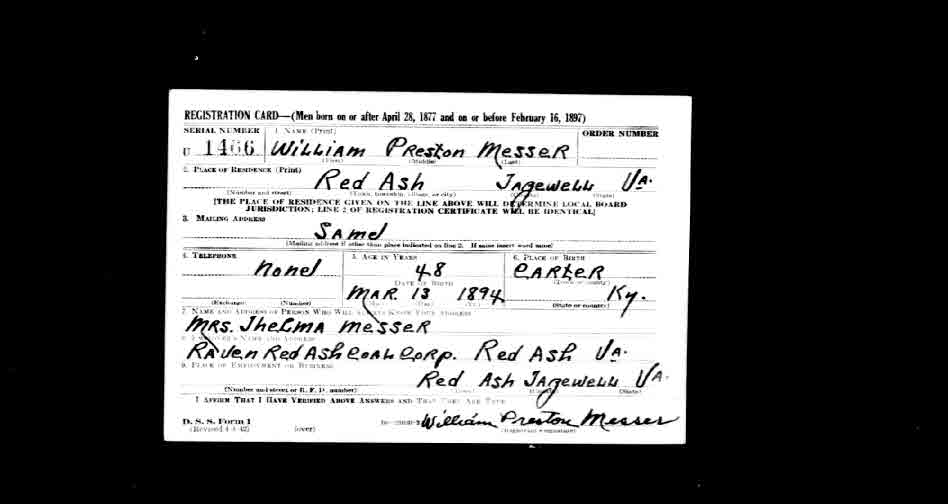 REGISTRATION CARD—(Men born on or after April 28, 1877 and on or before February 16, 1897)
SERIAL NUMBER 1. NAME (Print) ORDER NUMBER
U 1466 William Preston Messer
(First) (Middle) (Last)
2. PLACE OF RESIDENCE (Print)
Red Ash Tazewell Va.
(Number and street) (Town, township, village, or city) (County) (State)
[THE PLACE OF RESIDENCE GIVEN ON THE LINE ABOVE WILL DETERMINE LOCAL BOARD
JURISDICTION; LINE 2 OF REGISTRATION CERTIFICATE WILL BE IDENTICAL]
3. MAILING ADDRESS
Same
(Mailing address if other than place indicated on line 2. If same insert word same)
4. TELEPHONE 5. AGE IN YEARS 6. PLACE OF BIRTH
None 48 Carter
DATE OF BIRTH (Town or county)
Mar. 13 1894 Ky.
(Exchange) (Number) (Mo.) (Day) (Yr.) (State or country)
7. NAME AND ADDRESS OF PERSON WHO WILL ALWAYS KNOW YOUR ADDRESS
Mrs. Thelma Messer
8. EMPLOYER'S NAME AND ADDRESS
Raven Red Ash Coal Corp. Red Ash Va.
9. PLACE OF EMPLOYMENT OR BUSINESS
Red Ash Tazewell Va.
(Number and street or R. F. D. number) (Town) (County) (State)
I AFFIRM THAT I HAVE VERIFIED ABOVE ANSWERS AND THAT THEY ARE TRUE
D. S. S. Form 1 William Preston Messer
(Revised 4-1-42) (over) (Registrant's signature)